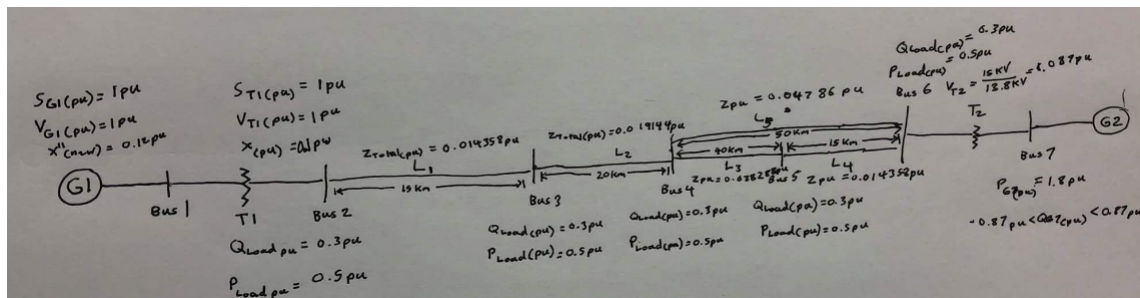 S_G1(pu) = 1pu
V_G1(pu) = 1pu
x"(new) = 0.12pu
G1
Bus 1
S_T1(pu) = 1pu
V_T1(pu) = 1pu
x(pu) =
T1
Q_Load pu = 0.3pu
P_Load pu = 0.5pu
Bus 2
Z_Total(pu) = 0.014358pu
L1
15km
Bus 3
Q_Load(pu) = 0.3pu
P_Load(pu) = 0.5pu
Z_Total(pu) = 0.01914
L2
20km
Bus 4
Q_Load(pu) = 0.3pu
P_Load(pu) = 0.5pu
Z_pu = 0.04786 pu
L5
50km
40km
15km
L3
L4
Bus 5
Z_pu = 0.014358pu
Q_Load(pu) = 0.3pu
P_Load(pu) = 0.5pu
Q_Load(pu) = 0.3pu
P_Load(pu) = 0.5pu
V_T2 = 15KV/13.8KV =
Bus 6
T2
Bus 7
G2
P_G7(pu) = 1.8pu
-0.87pu < Q_G7(pu) < 0.87pu